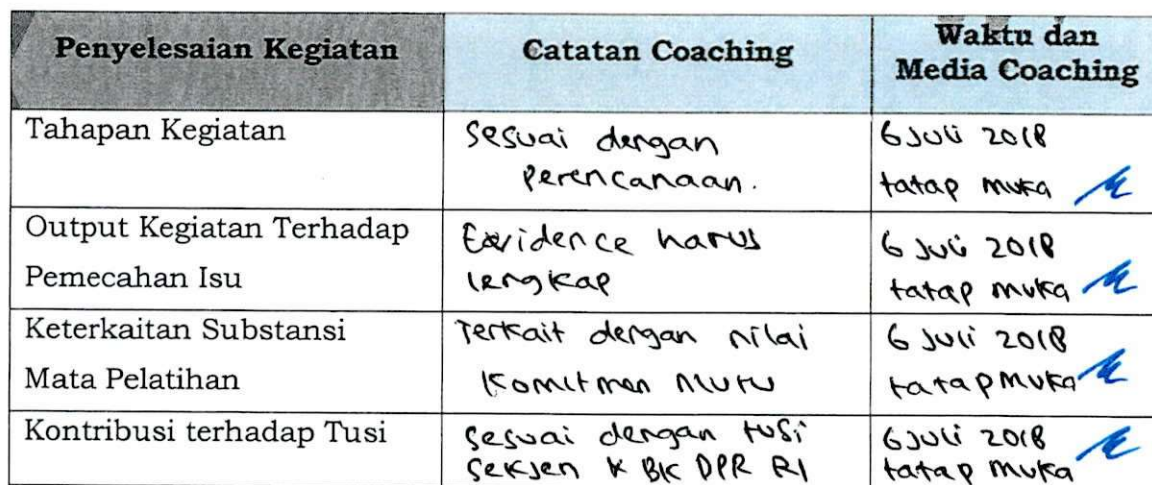 Penyelesaian Kegiatan
Catatan Coaching
Waktu dan
Media Coaching
Tahapan Kegiatan
Sesuai dengan
perencanaan.
6 Juli 2018
tatap muka
Output Kegiatan Terhadap
Pemecahan Isu
Evidence harus
lengkap
6 Juli 2018
tatap muka
Keterkaitan Substansi
Mata Pelatihan
Terkait dengan nilai
Komitmen Mutu
6 Juli 2018
tatap muka
Kontribusi terhadap Tusi
Sesuai dengan tusi
Sekjen & BK DPR RI
6 Juli 2018
tatap muka